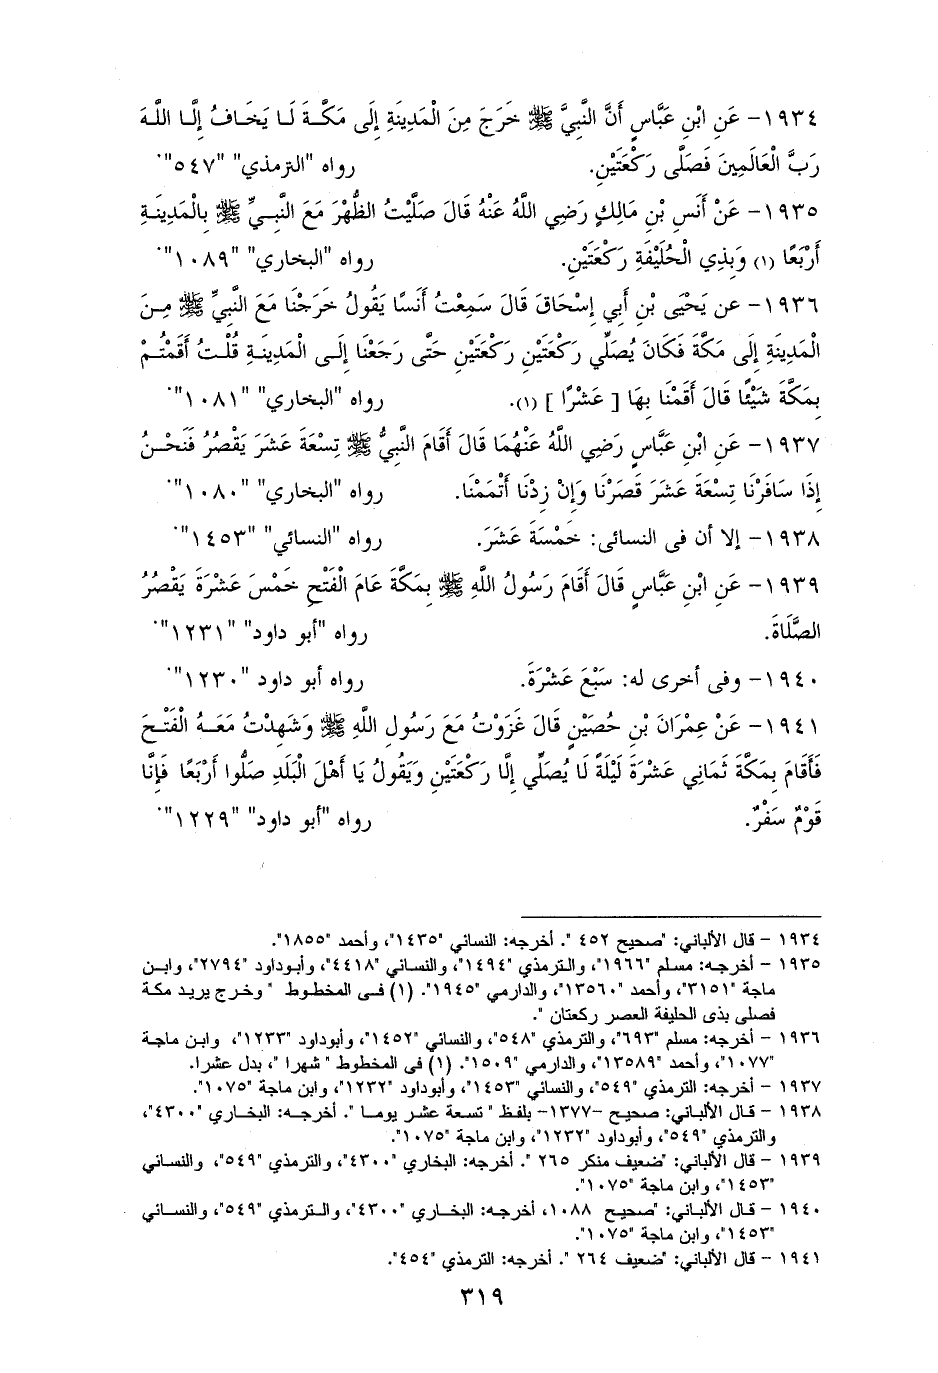 ١٩٣٤- عَنِ ابْنِ عَبَّاسٍ أَنَّ النَّبِيَّ ﷺ خَرَجَ مِنَ الْمَدِينَةِ إِلَى مَكَّةَ لَا يَخَافُ إِلَّا اللَّهَ
رَبَّ الْعَالَمِينَ فَصَلَّى رَكْعَتَيْنِ. رواه "الترمذي" "٥٤٧".
١٩٣٥- عَنْ أَنَسِ بْنِ مَالِكٍ رَضِيَ اللَّهُ عَنْهُ قَالَ صَلَّيْتُ الظُّهْرَ مَعَ النَّبِيِّ ﷺ بِالْمَدِينَةِ
أَرْبَعًا (١) وَبِذِي الْحُلَيْفَةِ رَكْعَتَيْنِ. رواه "البخاري" "١٠٨٩".
١٩٣٦- عن يَحْيَى بْنِ أَبِي إِسْحَاقَ قَالَ سَمِعْتُ أَنَسًا يَقُولُ خَرَجْنَا مَعَ النَّبِيِّ ﷺ مِنَ
الْمَدِينَةِ إِلَى مَكَّةَ فَكَانَ يُصَلِّي رَكْعَتَيْنِ رَكْعَتَيْنِ حَتَّى رَجَعْنَا إِلَى الْمَدِينَةِ قُلْتُ أَقَمْتُمْ
بِمَكَّةَ شَيْئًا قَالَ أَقَمْنَا بِهَا [ عَشْرًا ] (١). رواه "البخاري" "١٠٨١".
١٩٣٧- عَنِ ابْنِ عَبَّاسٍ رَضِيَ اللَّهُ عَنْهُمَا قَالَ أَقَامَ النَّبِيُّ ﷺ تِسْعَةَ عَشَرَ يَقْصُرُ فَنَحْنُ
إِذَا سَافَرْنَا تِسْعَةَ عَشَرَ قَصَرْنَا وَإِنْ زِدْنَا أَتْمَمْنَا. رواه "البخاري" "١٠٨٠".
١٩٣٨- إلا أن فى النسائى: خَمْسَةَ عَشَرَ. رواه "النسائي" "١٤٥٣".
١٩٣٩- عَنِ ابْنِ عَبَّاسٍ قَالَ أَقَامَ رَسُولُ اللَّهِ ﷺ بِمَكَّةَ عَامَ الْفَتْحِ خَمْسَ عَشْرَةَ يَقْصُرُ
الصَّلَاةَ. رواه "أبو داود" "١٢٣١".
١٩٤٠- وفى أخرى له: سَبْعَ عَشْرَةَ. رواه أبو داود "١٢٣٠".
١٩٤١- عَنْ عِمْرَانَ بْنِ حُصَيْنٍ قَالَ غَزَوْتُ مَعَ رَسُولِ اللَّهِ ﷺ وَشَهِدْتُ مَعَهُ الْفَتْحَ
فَأَقَامَ بِمَكَّةَ ثَمَانِي عَشْرَةَ لَيْلَةً لَا يُصَلِّي إِلَّا رَكْعَتَيْنِ وَيَقُولُ يَا أَهْلَ الْبَلَدِ صَلُّوا أَرْبَعًا فَإِنَّا
قَوْمٌ سَفْرٌ. رواه "أبو داود" "١٢٢٩".
١٩٣٤ - قال الألباني: "صحيح ٤٥٢ ". أخرجه: النسائي "١٤٣٥"، وأحمد "١٨٥٥".
١٩٣٥ - أخرجه: مسلم "١٩٦٦"، والترمذي "١٤٩٤"، والنسائي "٤٤١٨"، وأبوداود "٢٧٩٤"، وابن
ماجة "٣١٥١"، وأحمد "١٣٥٦٠"، والدارمي "١٩٤٥". (١) فى المخطوط " وخرج يريد مكة
فصلى بذى الحليفة العصر ركعتان ".
١٩٣٦ - أخرجه: مسلم "٦٩٣"، والترمذي "٥٤٨"، والنسائي "١٤٥٢"، وأبوداود "١٢٣٣"، وابن ماجة
"١٠٧٧"، وأحمد "١٣٥٨٩"، والدارمي "١٥٠٩". (١) فى المخطوط " شهرا "، بدل عشرا.
١٩٣٧ - أخرجه: الترمذي "٥٤٩"، والنسائي "١٤٥٣"، وأبوداود "١٢٣٢"، وابن ماجة "١٠٧٥".
١٩٣٨ - قال الألباني: صحيح -١٣٧٧- بلفظ " تسعة عشر يوما ". أخرجه: البخاري "٤٣٠٠"،
والترمذي "٥٤٩"، وأبوداود "١٢٣٢"، وابن ماجة "١٠٧٥".
١٩٣٩ - قال الألباني: "ضعيف منكر ٢٦٥ ". أخرجه: البخاري "٤٣٠٠"، والترمذي "٥٤٩"، والنسائي
"١٤٥٣"، وابن ماجة "١٠٧٥".
١٩٤٠ - قال الألباني: "صحيح ١٠٨٨، أخرجه: البخاري "٤٣٠٠"، والترمذي "٥٤٩"، والنسائي
"١٤٥٣"، وابن ماجة "١٠٧٥".
١٩٤١ - قال الألباني: "ضعيف ٢٦٤ ". أخرجه: الترمذي "٤٥٤".
٣١٩